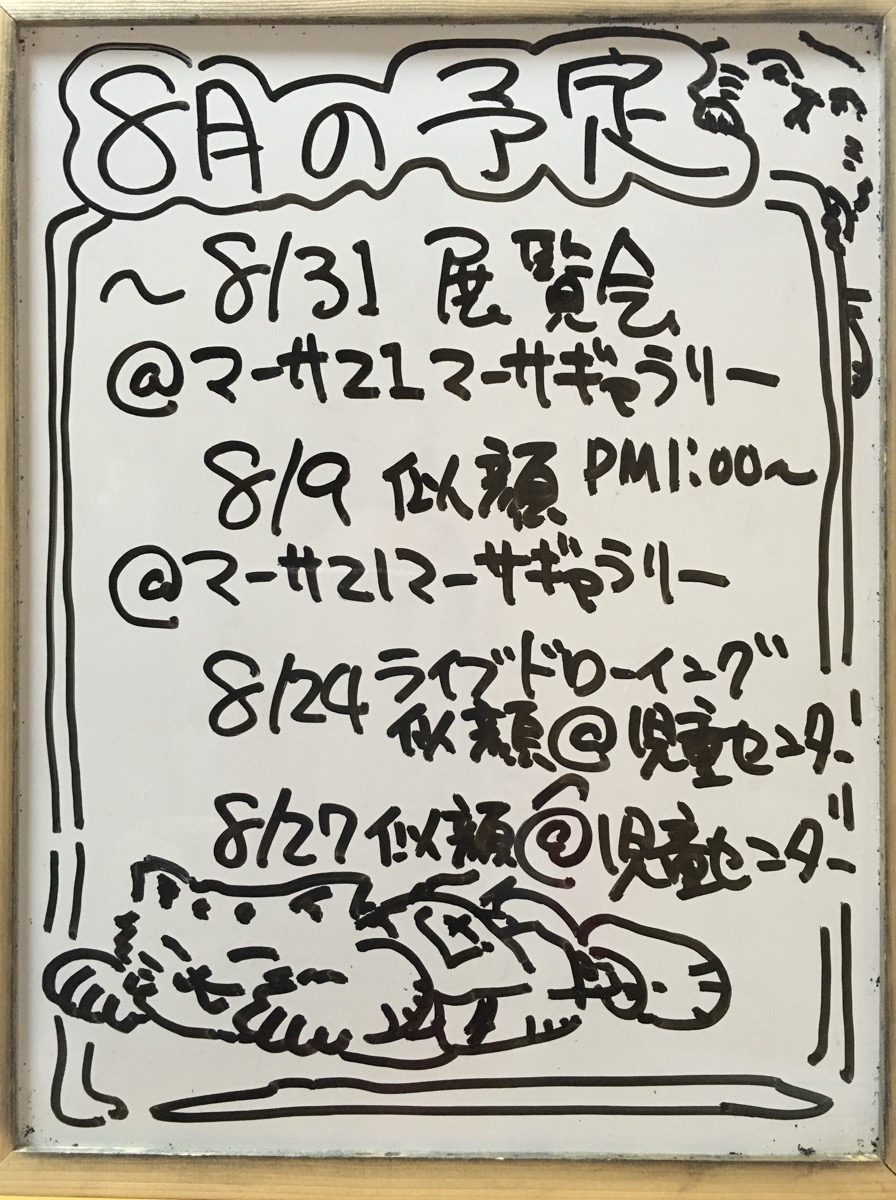 8月の予定
〜8/31 展覧会
@マーサ21マーサギャラリー
8/9 似顔 PM1:00〜
@マーサ21マーサギャラリー
8/24 ライブドローイング
似顔@児童センター
8/27 似顔@児童センター